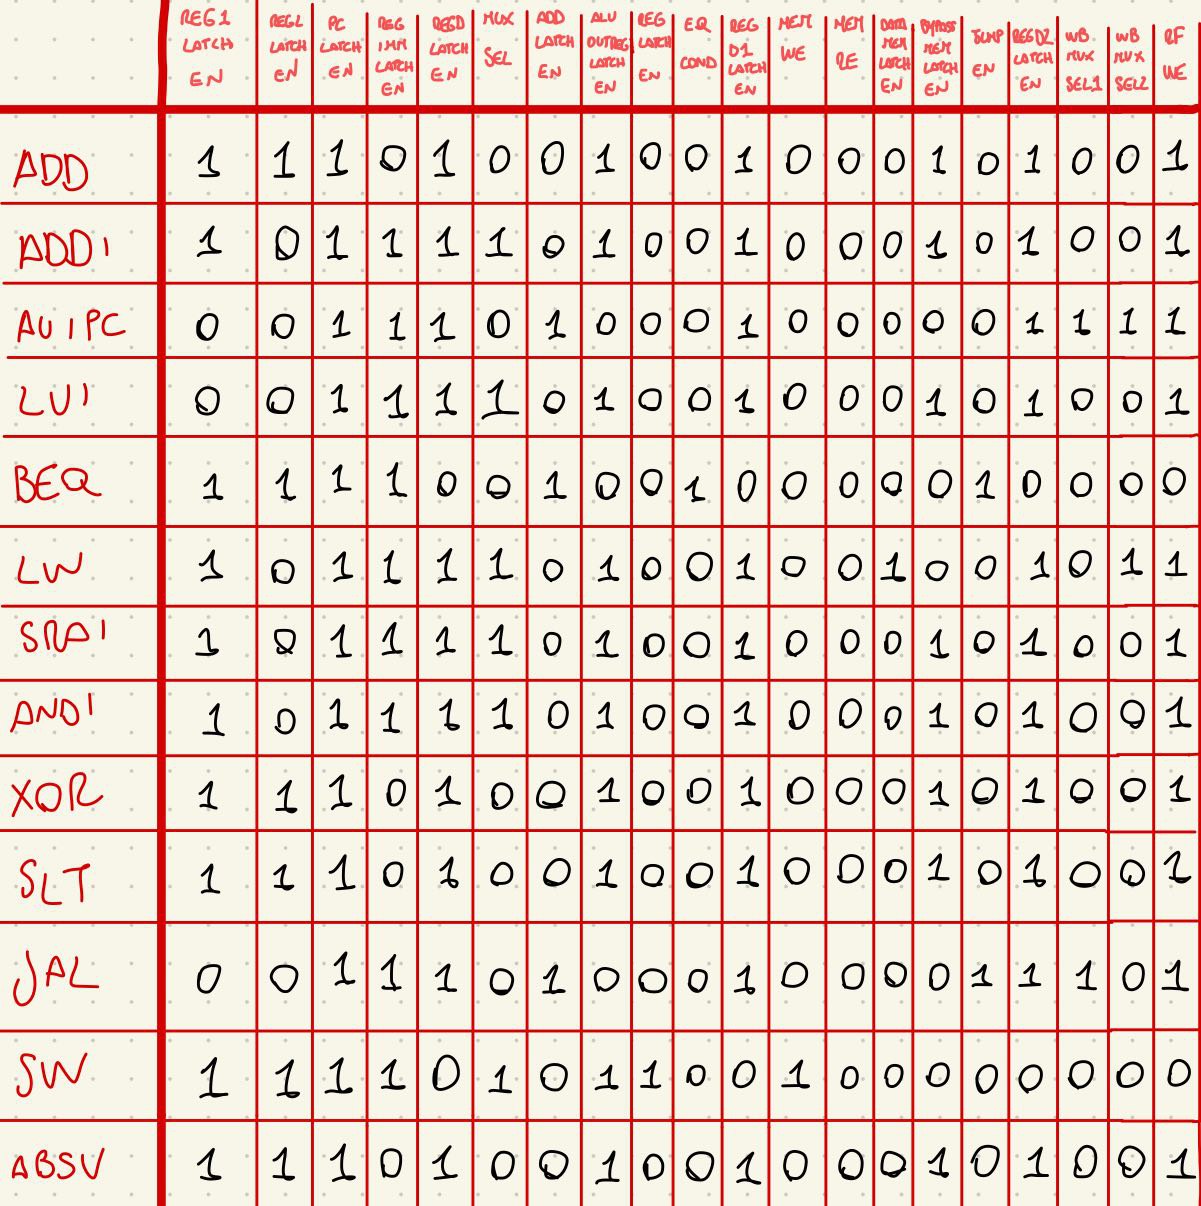 REG1 LATCH EN REG2 LATCH EN PC LATCH EN REG IMM LATCH EN REGD LATCH EN MUX SEL ADD LATCH EN ALU OUTREG LATCH EN REG LATCH EN EQ COND REG D1 LATCH EN MEM WE MEM RE DATA MEM LATCH EN BYPASS MEM LATCH EN JUMP EN REGD2 LATCH EN WB MUX SEL1 WB MUX SEL2 RF WE
ADD 1 1 1 0 1 0 0 1 0 0 1 0 0 0 1 0 1 0 0 1
ADDI 1 0 1 1 1 1 0 1 0 0 1 0 0 0 1 0 1 0 0 1
AUIPC 0 0 1 1 1 0 1 0 0 0 1 0 0 0 0 0 1 1 1 1
LUI 0 0 1 1 1 1 0 1 0 0 1 0 0 0 1 0 1 0 0 1
BEQ 1 1 1 1 0 0 1 0 0 1 0 0 0 0 0 1 0 0 0 0
LW 1 0 1 1 1 1 0 1 0 0 1 0 0 1 0 0 1 0 1 1
SRAI 1 0 1 1 1 1 0 1 0 0 1 0 0 0 1 0 1 0 0 1
ANDI 1 0 1 1 1 1 0 1 0 0 1 0 0 0 1 0 1 0 0 1
XOR 1 1 1 0 1 0 0 1 0 0 1 0 0 0 1 0 1 0 0 1
SLT 1 1 1 0 1 0 0 1 0 0 1 0 0 0 1 0 1 0 0 1
JAL 0 0 1 1 1 0 1 0 0 0 1 0 0 0 0 1 1 1 0 1
SW 1 1 1 1 0 1 0 1 1 0 0 1 0 0 0 0 0 0 0 0
ABSV 1 1 1 0 1 0 0 1 0 0 1 0 0 0 1 0 1 0 0 1